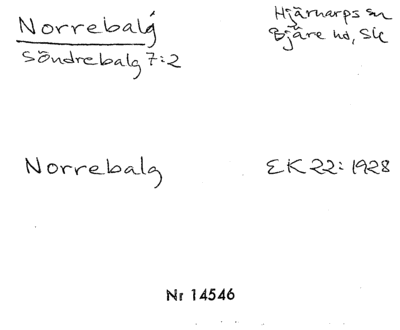 Norrebalg
Söndrebalg 7:2
Hjärnarps sn
Bjäre hd, Sk
Norrebalg
EK 22: 1928
Nr 14546